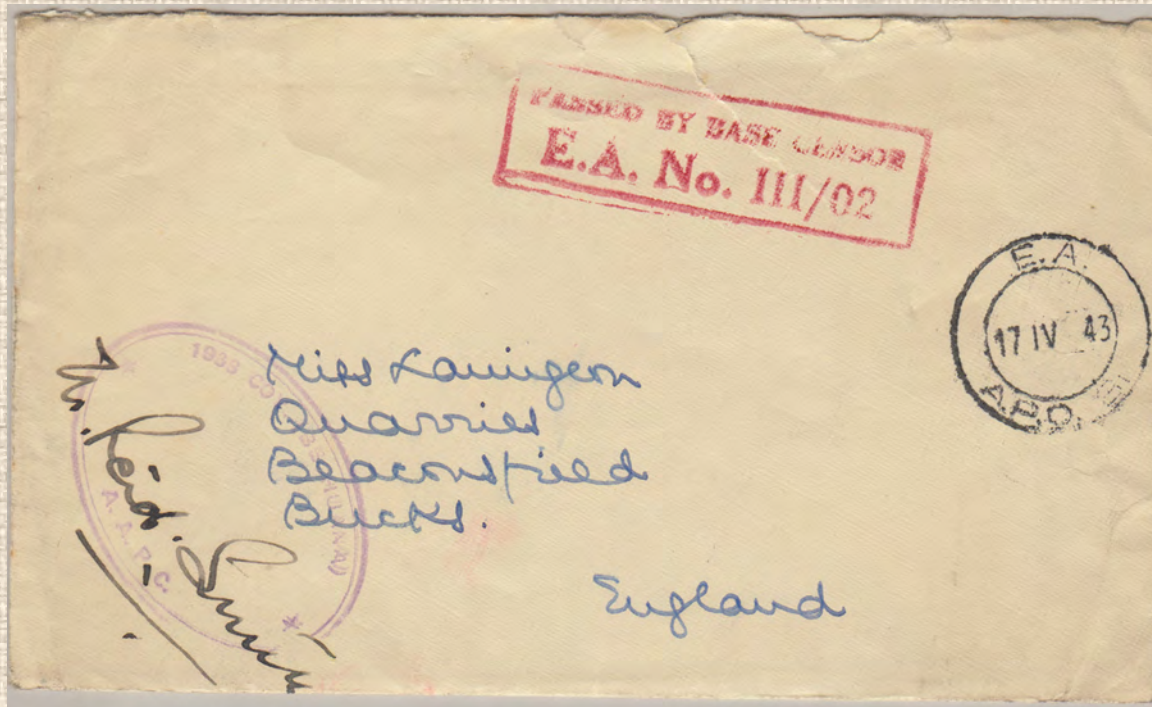 PASSED BY BASE CENSOR
E.A. No. III/02
E.A.
17 IV 43
A.P.O.
1933 CO
A. A. P. C.
Miss
Quarries
Beaconsfield
Bucks.
England